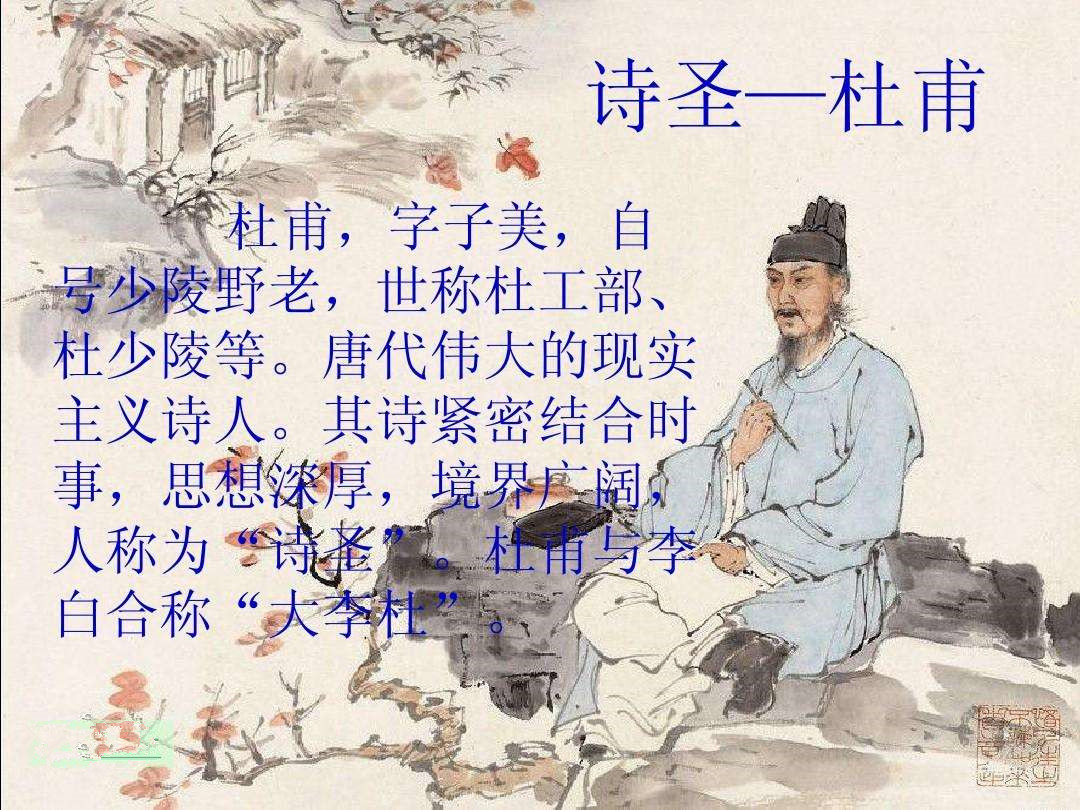 诗圣—杜甫
杜甫，字子美，自
号少陵野老，世称杜工部、
杜少陵等。唐代伟大的现实
主义诗人。其诗紧密结合时
事，思想深厚，境界广阔，
人称为“诗圣”。杜甫与李
白合称“大李杜”。